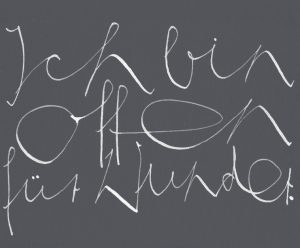 Ich bin
offen
für Wunder.